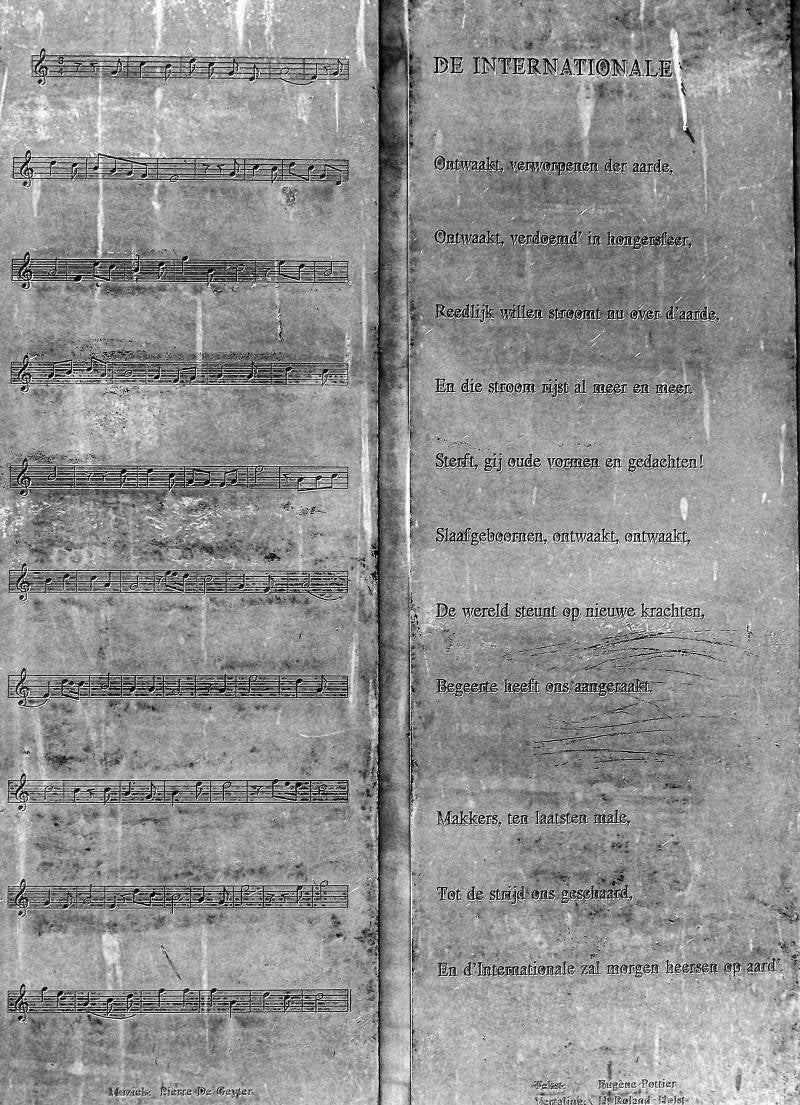 DE INTERNATIONALE
Ontwaakt, verworpenen der aarde,
Ontwaakt, verdoemd' in hongersfeer,
Reedlijk willen stroomt nu over d'aarde,
En die stroom rijst al meer en meer.
Sterft, gij oude vormen en gedachten!
Slaafgeboornen, ontwaakt, ontwaakt,
De wereld steunt op nieuwe krachten,
Begeerte heeft ons aangeraakt.
Makkers, ten laatsten male,
Tot de strijd ons geschaard,
En d'Internationale zal morgen heersen op aard'.
Muziek: Pierre De Geyter
Tekst: Eugène Pottier
Vertaling: H. Roland-Holst